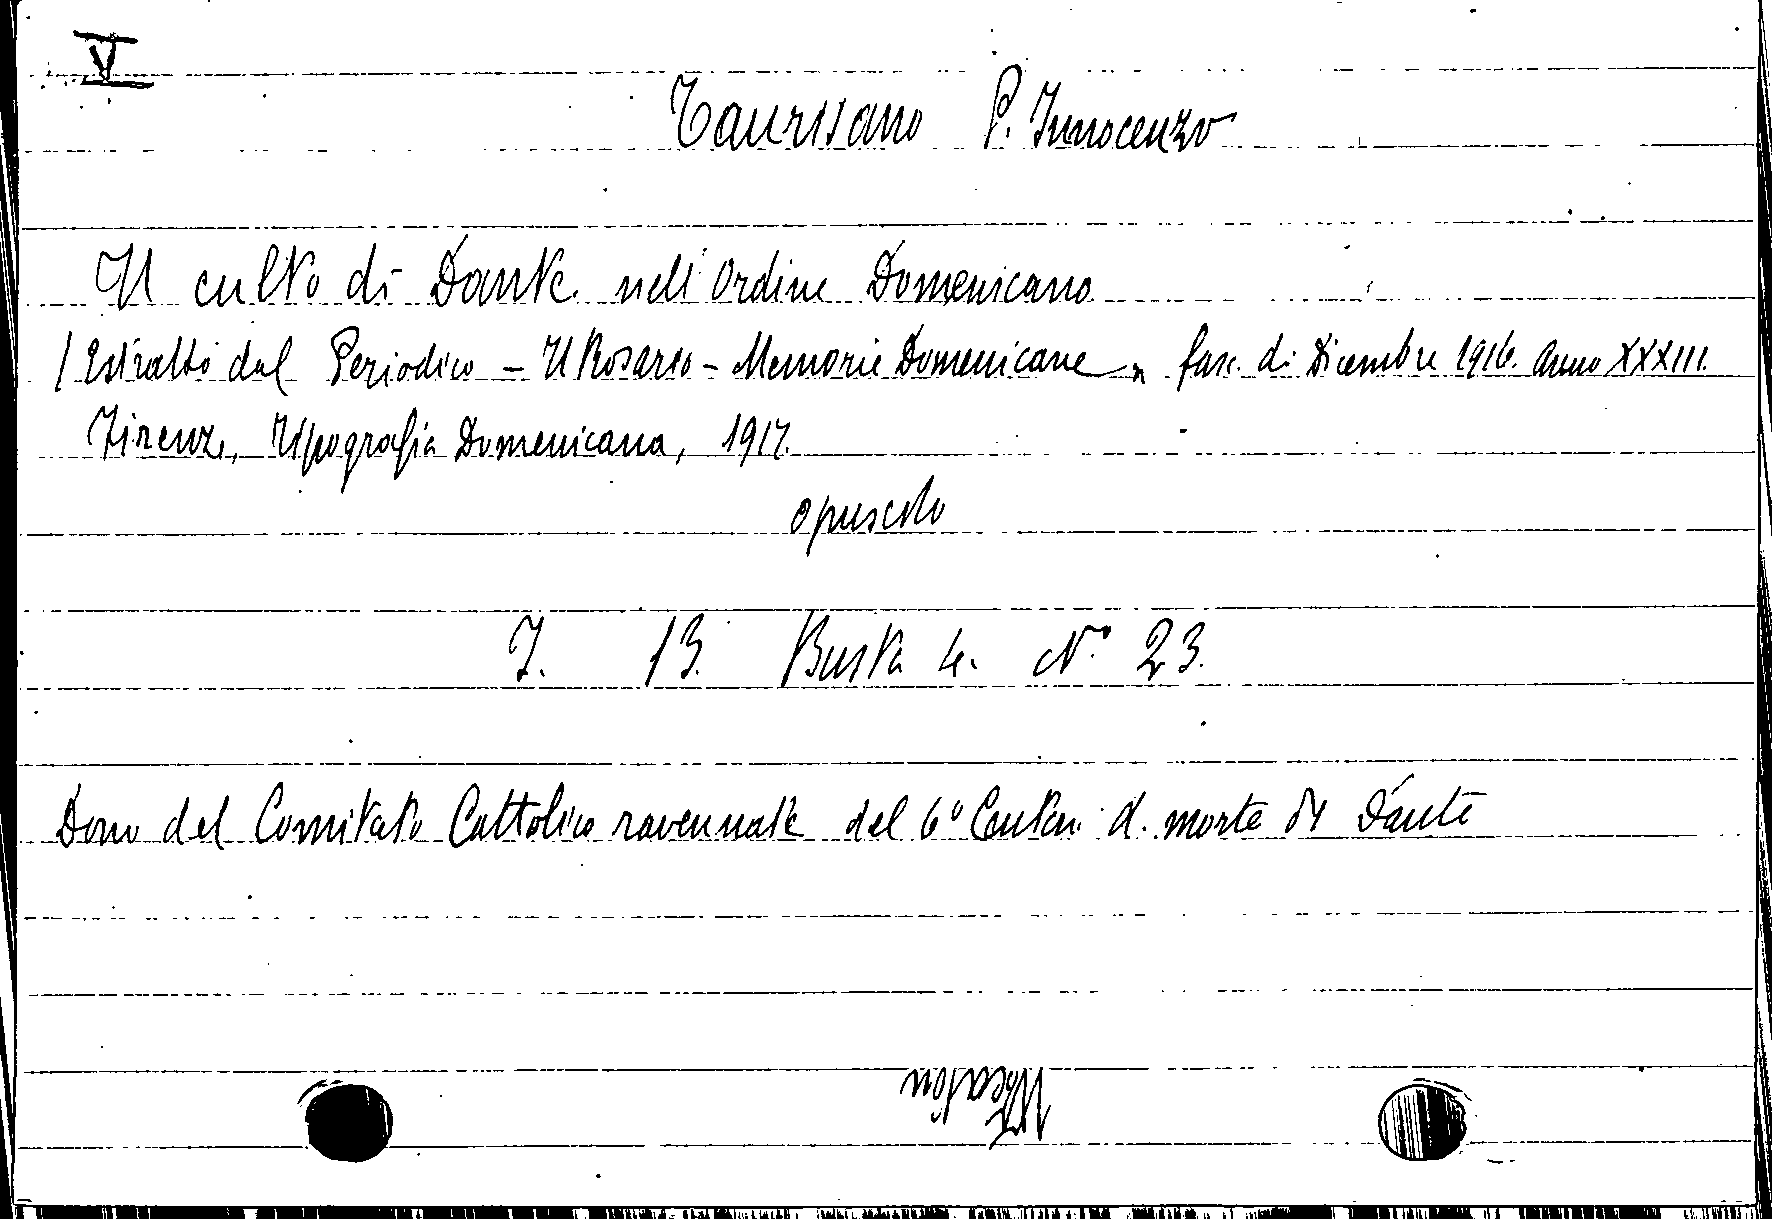 V
Taurisano P. Innocenzo
Il culto di Dante nell'Ordine Domenicano
(Estratto dal Periodico - Il Rosario - Memorie Domenicane " fasc. di Dicembre 1916. anno XXXIII.
Firenze, Tipografia Domenicana, 1917.
opuscolo
I. 13. Busta 4. N.° 23.
Dono del Comitato Cattolico ravennate del 6° Centen. d. morte di Dante